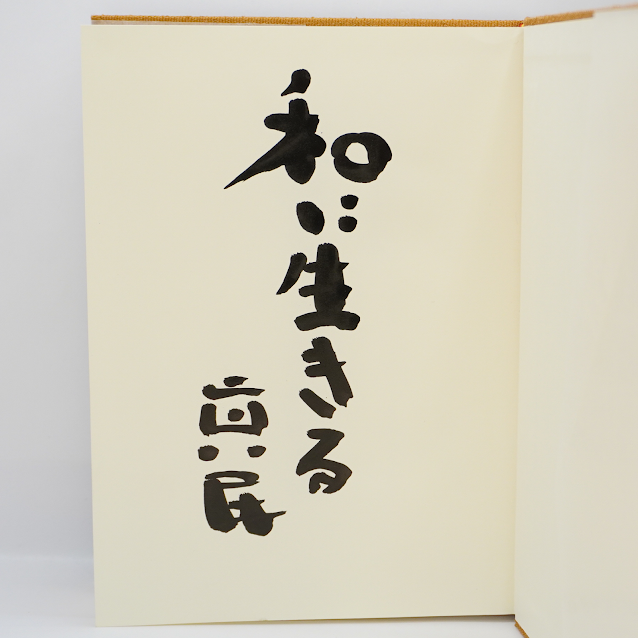 和に生きる
真民